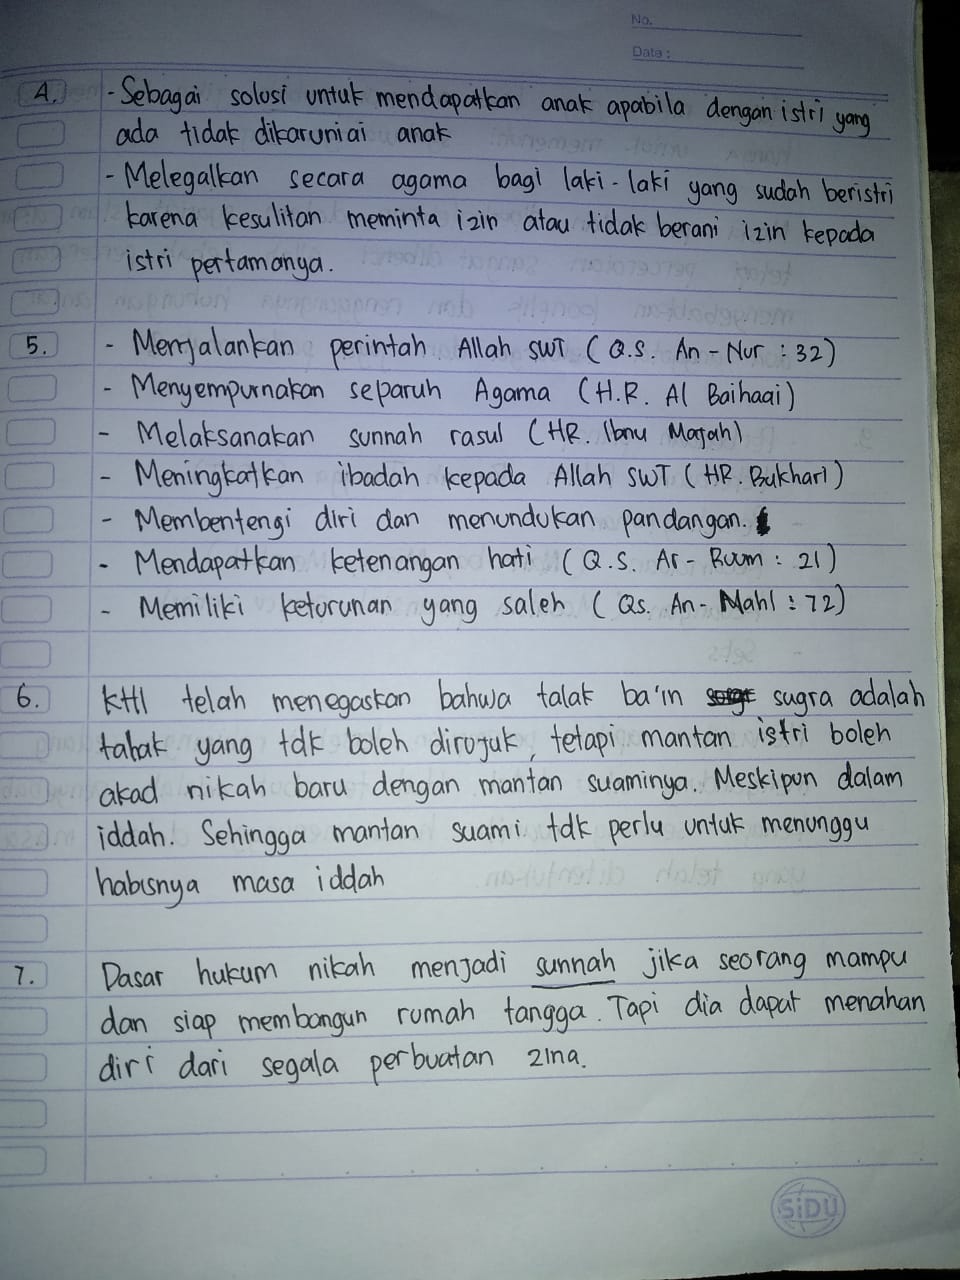 No.
Date :
4. - Sebagai solusi untuk mendapatkan anak apabila dengan istri yang
ada tidak dikaruniai anak
- Melegalkan secara agama bagi laki-laki yang sudah beristri
karena kesulitan meminta izin atau tidak berani izin kepada
istri pertamanya.
5. - Menjalankan perintah Allah SWT (Q.S. An-Nur : 32)
- Menyempurnakan separuh Agama (H.R. Al Baihaqi)
- Melaksanakan sunnah rasul (HR. Ibnu Majah)
- Meningkatkan ibadah kepada Allah SWT (HR. Bukhari)
- Membentengi diri dan menundukan pandangan.
- Mendapatkan ketenangan hati (Q.S. Ar-Ruum : 21)
- Memiliki keturunan yang saleh (Qs. An-Nahl : 72)
6. KHI telah menegaskan bahwa talak ba'in sugra adalah
talak yang tdk boleh dirujuk, tetapi mantan istri boleh
akad nikah baru dengan mantan suaminya. Meskipun dalam
iddah. Sehingga mantan suami tdk perlu untuk menunggu
habisnya masa iddah
7. Dasar hukum nikah menjadi sunnah jika seorang mampu
dan siap membangun rumah tangga. Tapi dia dapat menahan
diri dari segala perbuatan zina.
SiDU